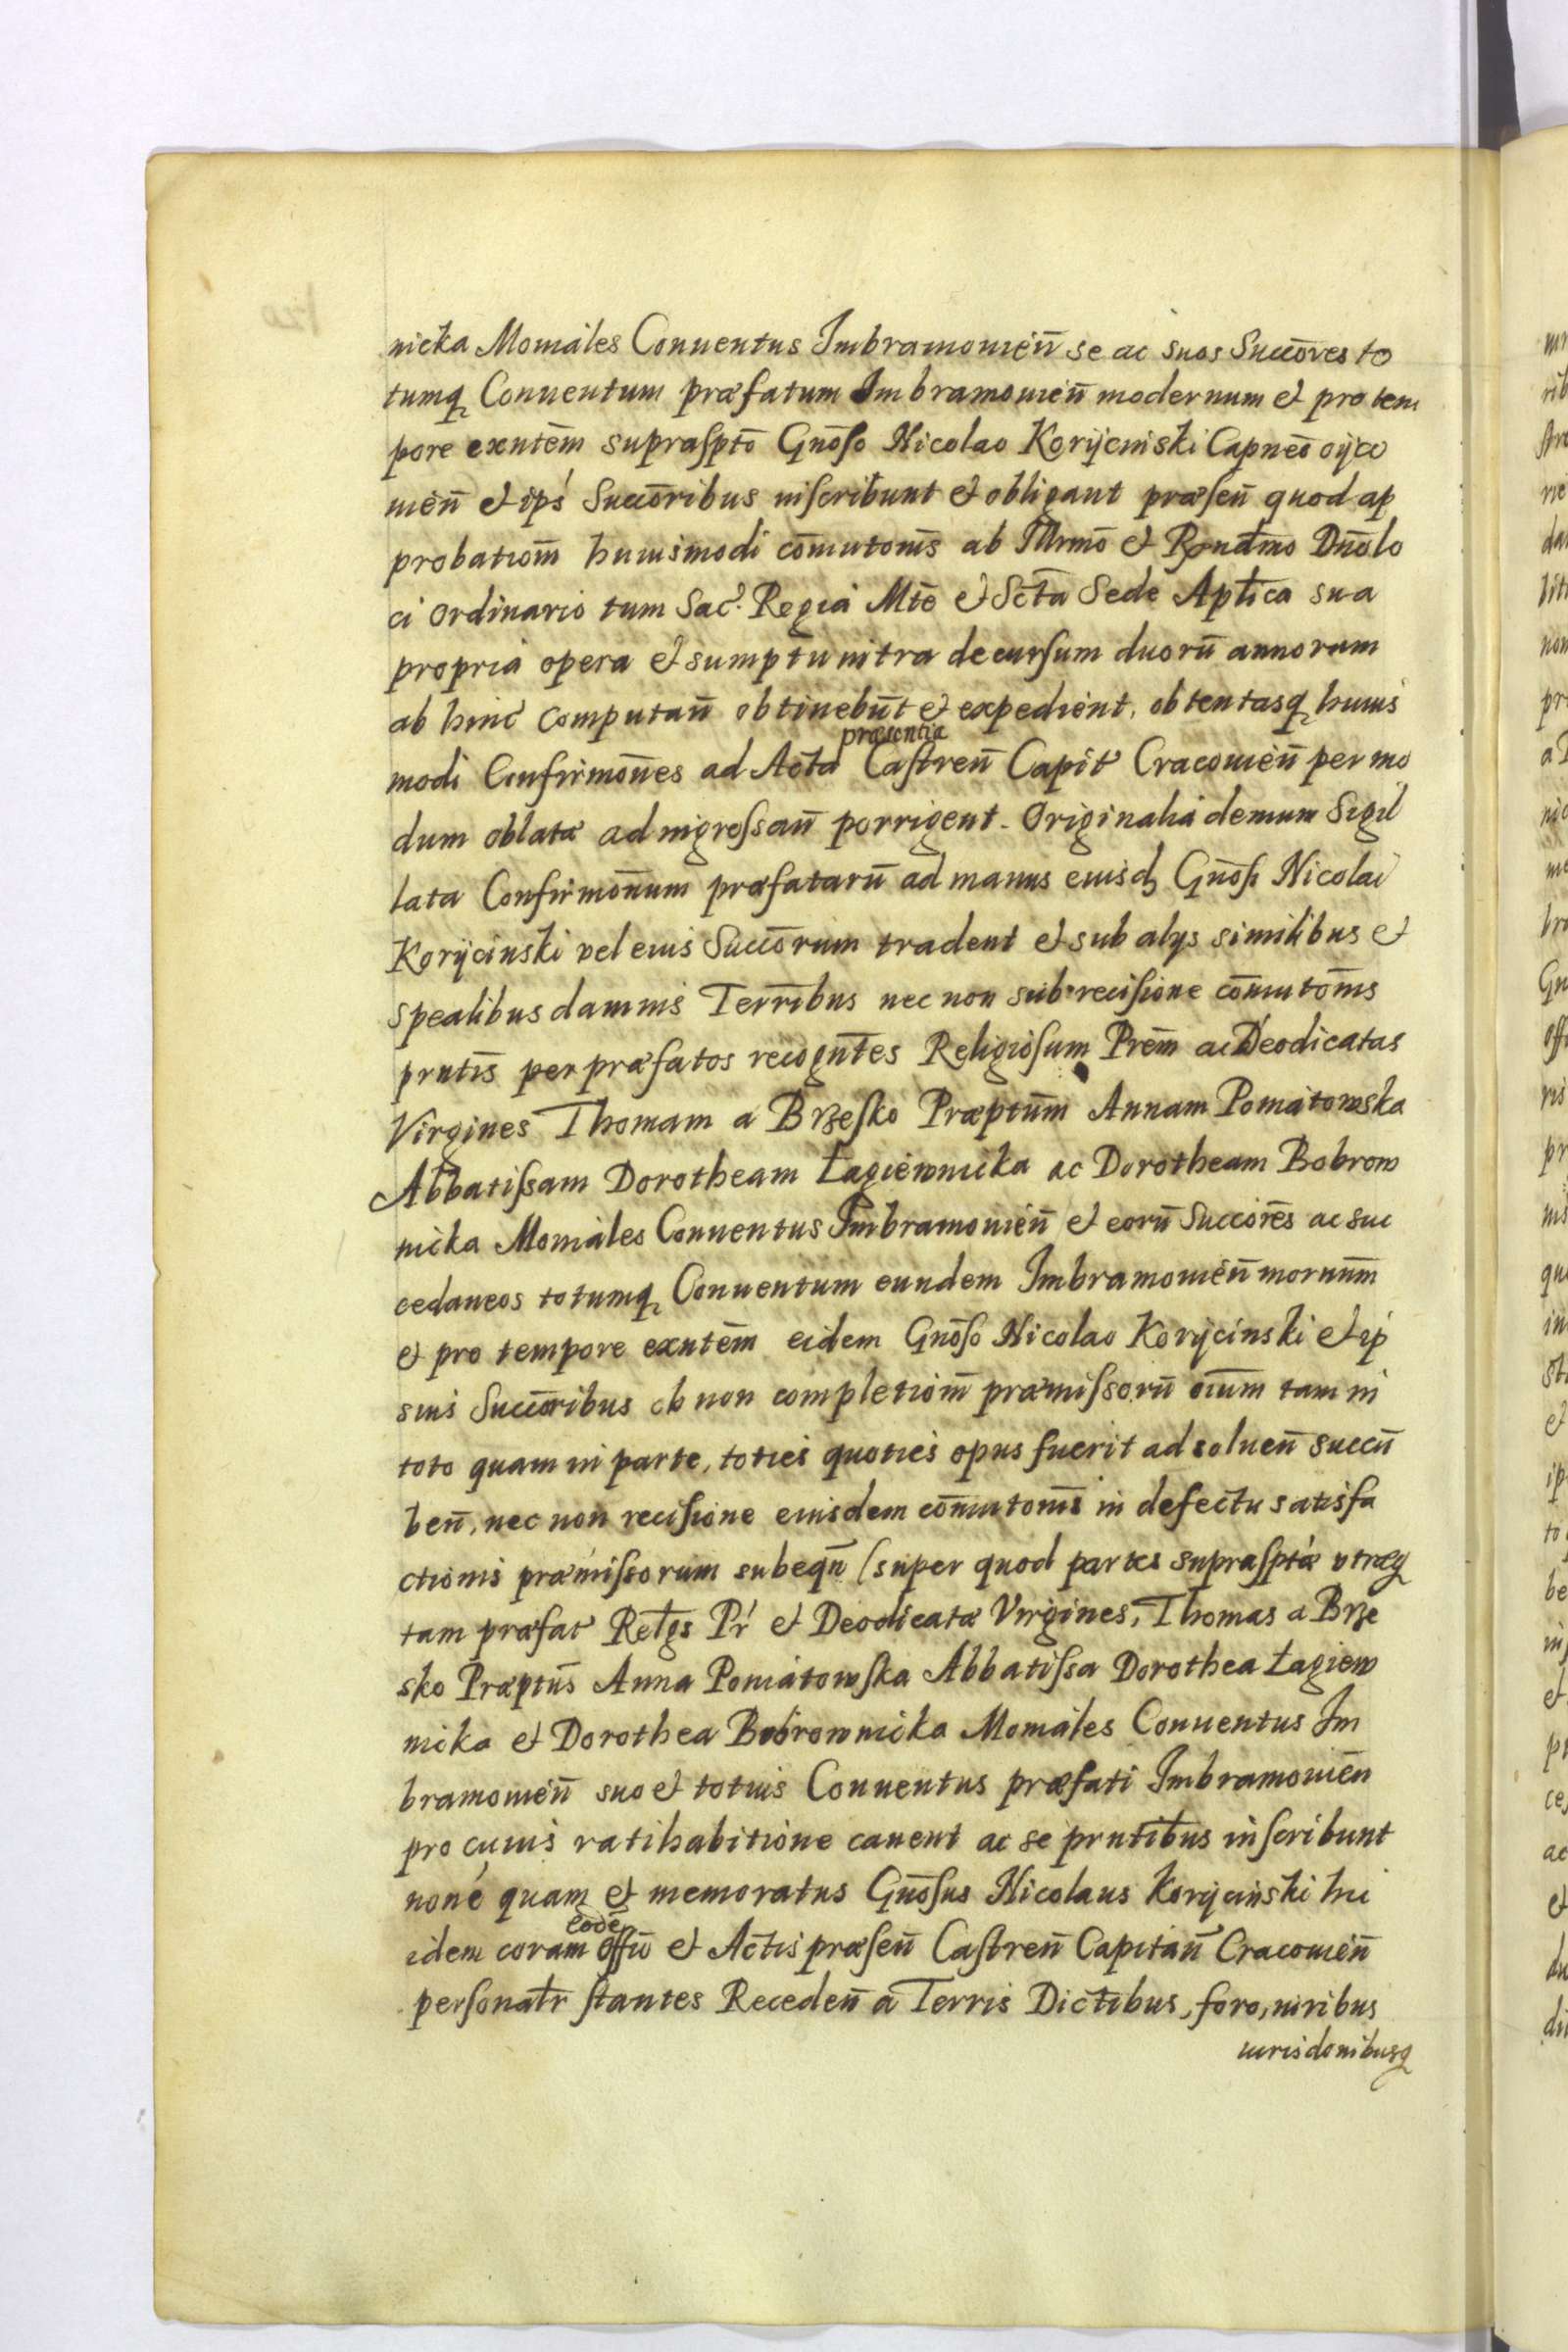 nicka Moniales Conuentus Imbramouień se ac suos Succōres to
tumq Conuentum præfatum Imbramouień modernum et pro tem
pore exntēm supraſptō Gnōſo Nicolao Korijcinski Capneō oÿco
uień et ipś Succōribus inſcribunt et obligant præſeñ quod ap
probatiom̄ huiusmodi cōmutoni̅s ab Illrmō et Rndmō Dnō lo
ci Ordinario tum Sac. Regia Mtē et Sctā Sede Aplica sua
propria opera et sumptu intra decurſum duorū annorum
ab hinc computań obtinebūt et expedient, obtentasq huius
modi Confirmōnes ad Acta præsentia Caſtreń Capit Cracouień per mo
dum oblatæ ad ingroſsań porrigent. Originalia demum Sigil
lata Confirmōnum præfatarū ad manus eiusd Gnōſi Nicolai
Korijcinski vel eius Succōrum tradent et sub alys similibus et
spealibus damnis Terribus nec non sub reciſione cōmutoni̅s
pn̄tis per præfatos recogntēs Religioſum Prēm ac Deodicatas
Virgines Thomam a Brzeſko Præptūm Annam Poniatowska
Abbatiſsam Dorotheam Łagiewnicka ac Dorotheam Bobrow
nicka Moniales Conuentus Imbramouień et eorū Succorēs ac suc
cedaneos totumq Conuentum eundem Imbramouień mornūm
et pro tempore exntēm eidem Gnōſo Nicolao Korijcinski et ip
sius Succōribus ob non completiom̄ præmiſsorū oium̄ tam in
toto quam in parte, toties quoties opus fuerit ad soluen̄ succū
ben̄, nec non reciſione eiusdem cōmutoni̅s in defectu satisfa
ctionis præmiſsorum subeqn̄ (super quod partes supraſptæ vtræq
tam præfat Relgs Pr et Deodicatæ Virgines, Thomas a Brze
sko Præptūs Anna Poniatowſka Abbatiſsa Dorothea Łagiew
nicka et Dorothea Bobrownicka Moniales Conuentus Im
bramouień suo et totius Conuentus præfati Imbramouień
pro cuius ratihabitione cauent ac se pn̄tibus inſcribunt
none quam et memoratus Gnōſus Nicolaus Korijcinski hic
idem coram eodē Offō et Actis præſeñ Caſtreń Capitań Cracouień
perſonatr ſtantes Receden̄ a Terris Dictibus, foro, iuribus
iurisdonibusq